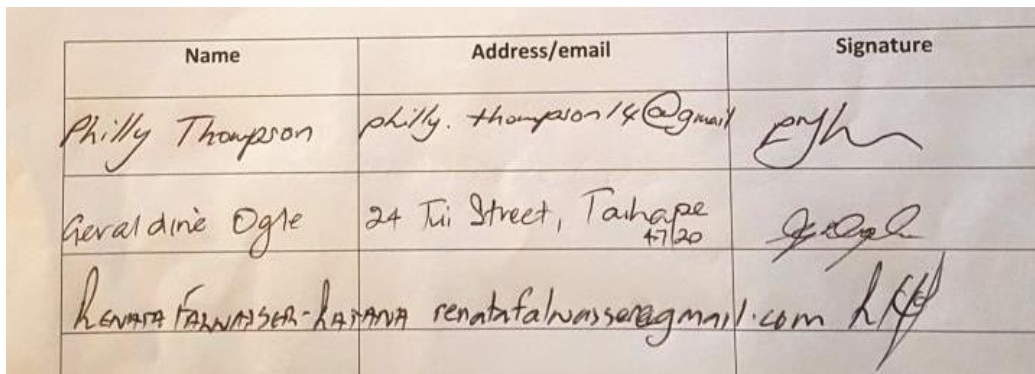 Name Address/email Signature
Philly Thompson philly.thompson14@gmail
Geraldine Ogle 24 Tui Street, Taihape
4720
renatafalwasser@gmail.com